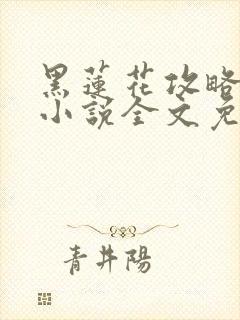 黑蓮花攻略
小說全文免
青井陽